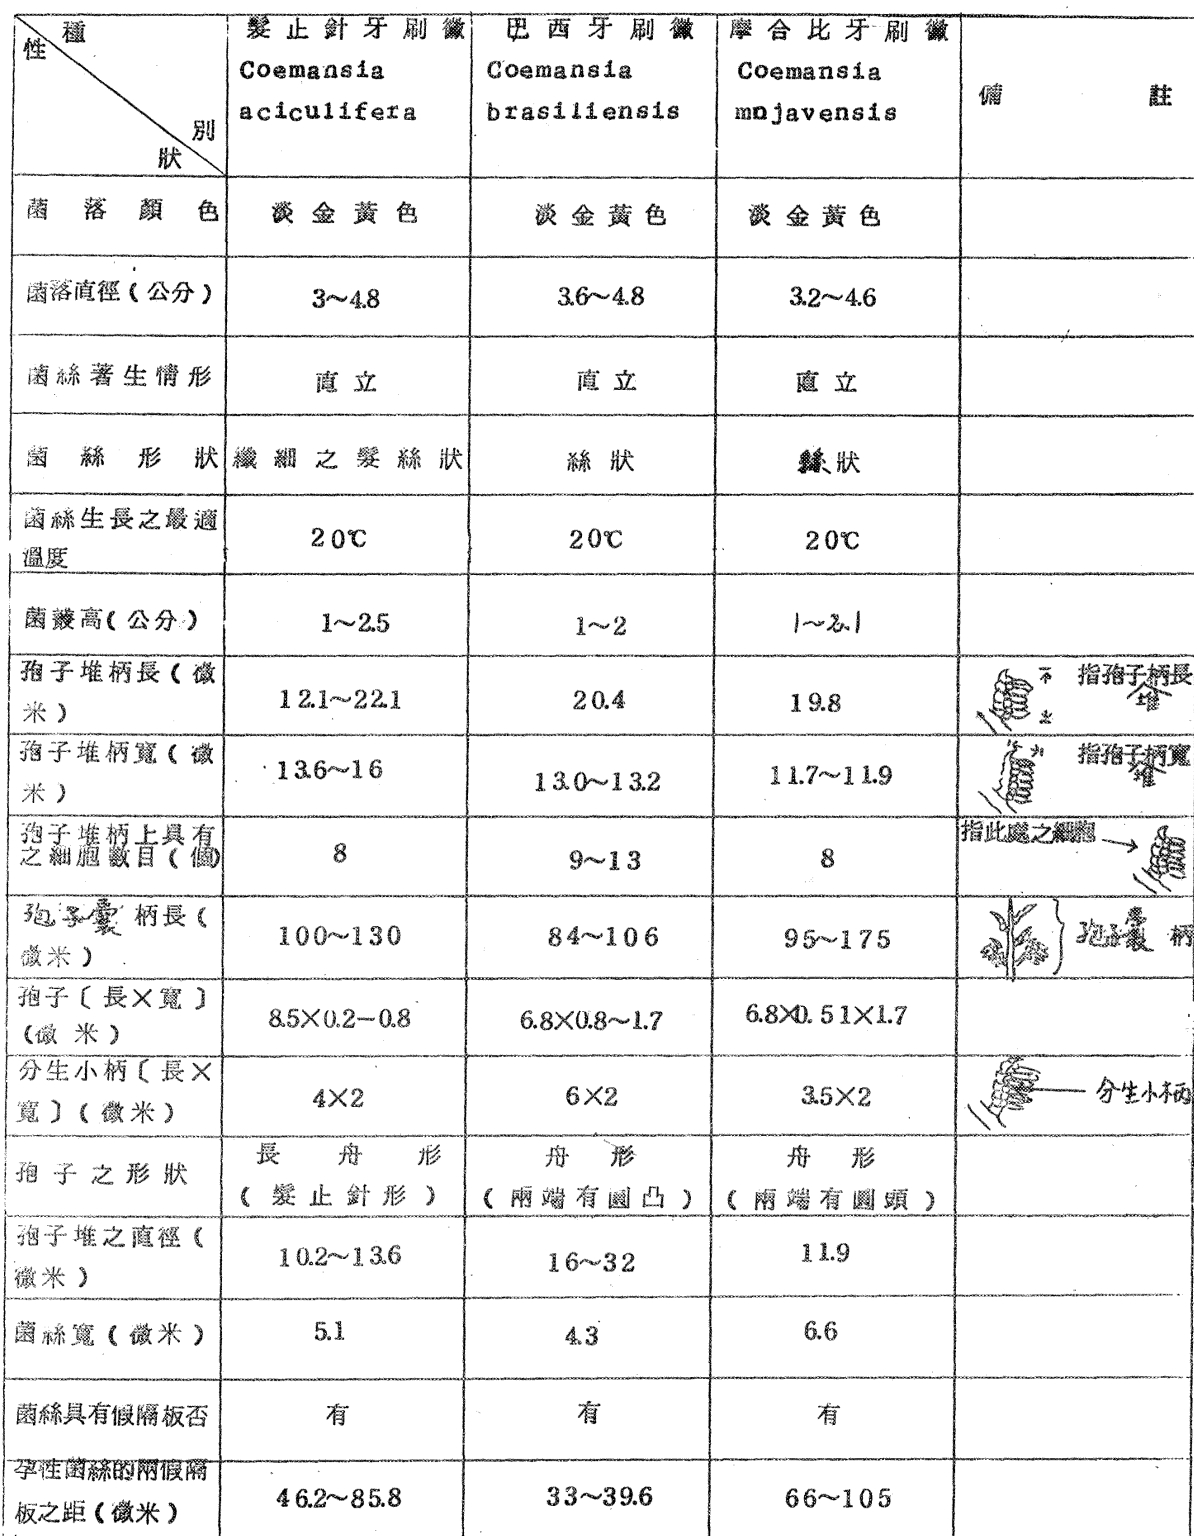 種 性 別 狀
髮止針牙刷黴 巴西牙刷黴 摩合比牙刷黴 備 註
Coemansia Coemansia Coemansia
aciculifera brasiliensis mojavensis
菌落顏色 淡金黃色 淡金黃色 淡金黃色
菌落直徑(公分) 3~4.8 3.6~4.8 3.2~4.6
菌絲著生情形 直立 直立 直立
菌絲形狀 纖細之髮絲狀 絲狀 絲狀
菌絲生長之最適
溫度 20℃ 20℃ 20℃
菌叢高(公分) 1~2.5 1~2 1~2.1
孢子堆柄長(微
米) 12.1~22.1 20.4 19.8 指孢子堆柄長
孢子堆柄寬(微
米) 13.6~16 13.0~13.2 11.7~11.9 指孢子堆柄寬
孢子堆柄上具有
之細胞數目(個) 8 9~13 8 指此處之細胞
孢子囊柄長(
微米) 100~130 84~106 95~175 孢子囊柄
孢子〔長×寬〕
(微米) 8.5×0.2-0.8 6.8×0.8~1.7 6.8×0.51×1.7
分生小柄〔長×
寬〕(微米) 4×2 6×2 3.5×2 分生小柄
孢子之形狀 長舟形 舟形 舟形
(髮止針形) (兩端有圓凸) (兩端有圓頭)
孢子堆之直徑(
微米) 10.2~13.6 16~32 11.9
菌絲寬(微米) 5.1 4.3 6.6
菌絲具有假隔板否 有 有 有
孕性菌絲的兩假隔
板之距(微米) 46.2~85.8 33~39.6 66~105